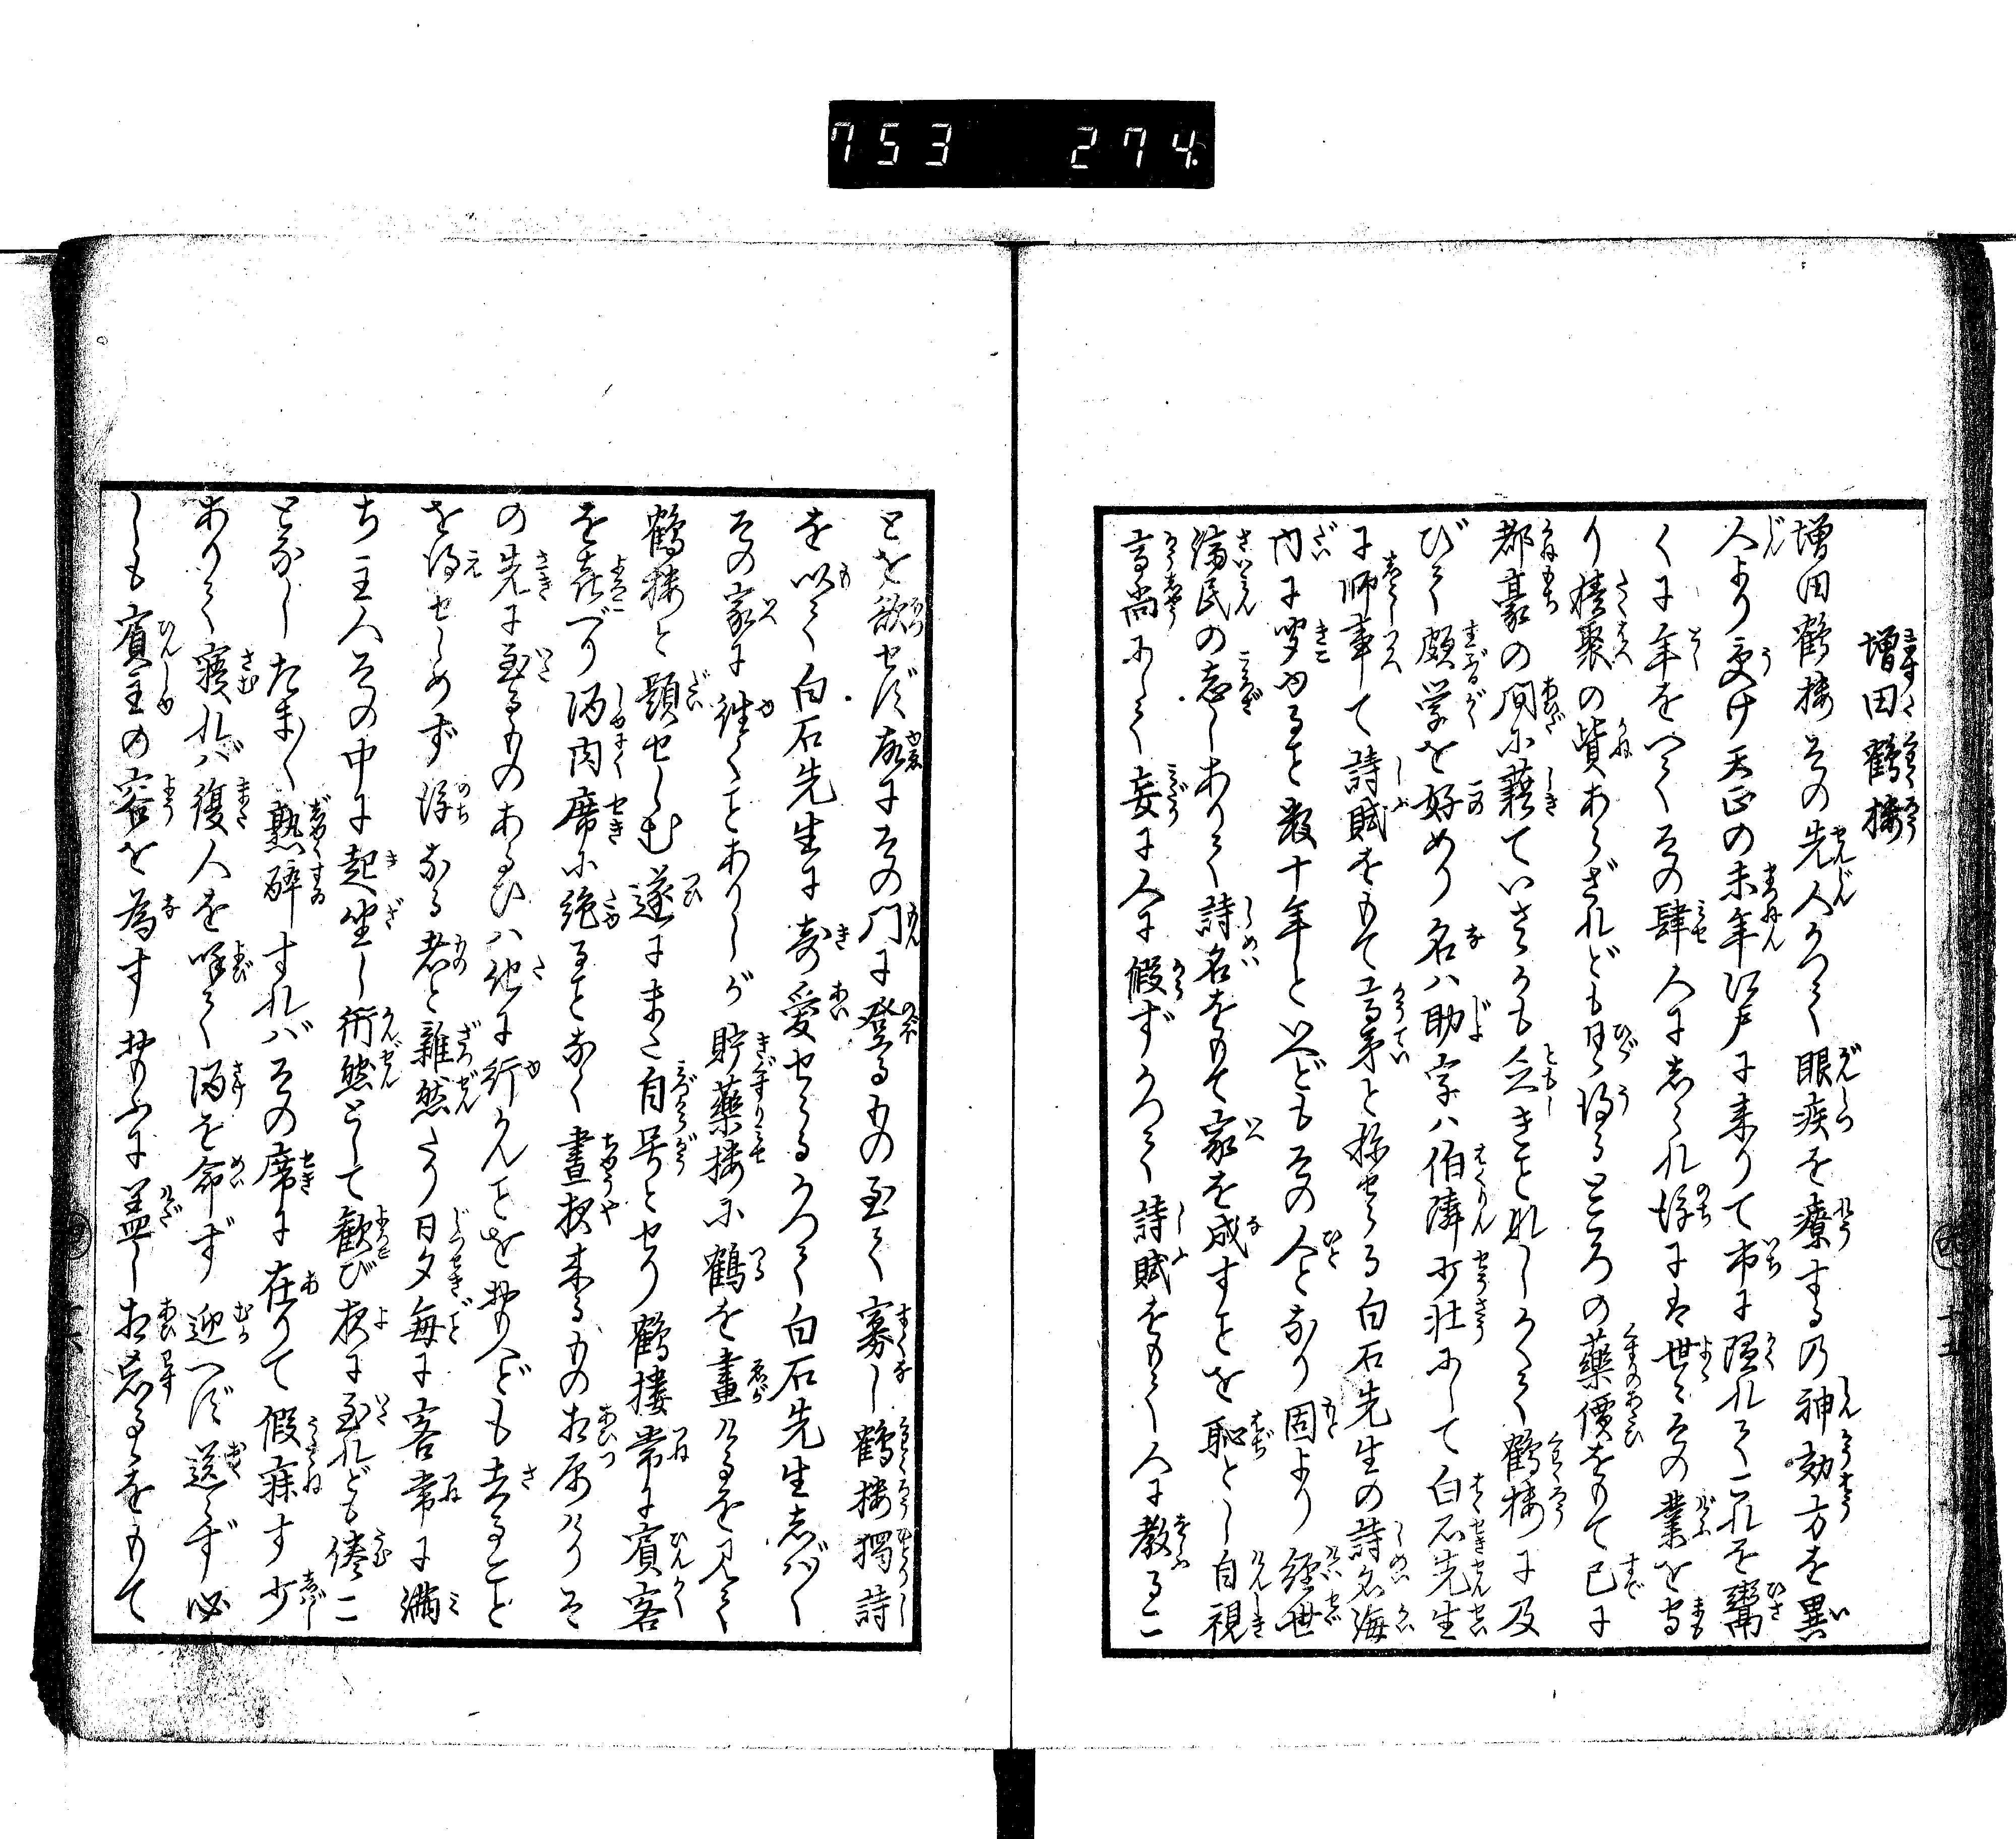 753 274
増田鶴楼
増田鶴楼その先人かつて眼疾を療するの神効方を異
人より受け天正の末年江戸に来りて市に隠れてこれを鬻
くに年をへてその肆人にしられ後には世々その業を守
り積聚の貲あらざれども日々得るところの薬價をもて已に
郡豪の間に藉ていさゝかも乏きことなししかして鶴楼に及
びて頗学を好めり名ハ助字ハ伯隣少壮にして白石先生
に師事て詩賦をもて高弟と称せらる白石先生の詩名海
内に聞ゆること数十年といへどもその人となり固より経世
済民の志しありて詩名をもて家を成すことを恥とし自視
高尚にして妄に人に假ずかつて詩賦をもて人に教るこ
とを欲せず故にその門に登るもの至て寡し鶴楼獨詩
を以て白石先生に寄愛せらるかつて白石先生しば〳〵
その家に往くことありしが貯薬楼に鶴を畫けるを見て
鶴楼と題せしむ遂にまた自号とせり鶴楼常に賓客
を喜べり酒肉席に絶ることなく晝夜来るもの相属けりそ
の先に至るものあるひハ他に行んことを思へども去ること
を得せしめず後なる者と雑然たり日夕毎に客常に満
ち主人その中に起坐し衎然として歓び夜に至れども倦こ
となしたま〳〵熟酔すればその席に在りて假寐す少
ありて寤れバ復人を呼て酒を命ず迎へず送らず必
しも賓主の容を為す思ふに蓋し相忘るゝをもて